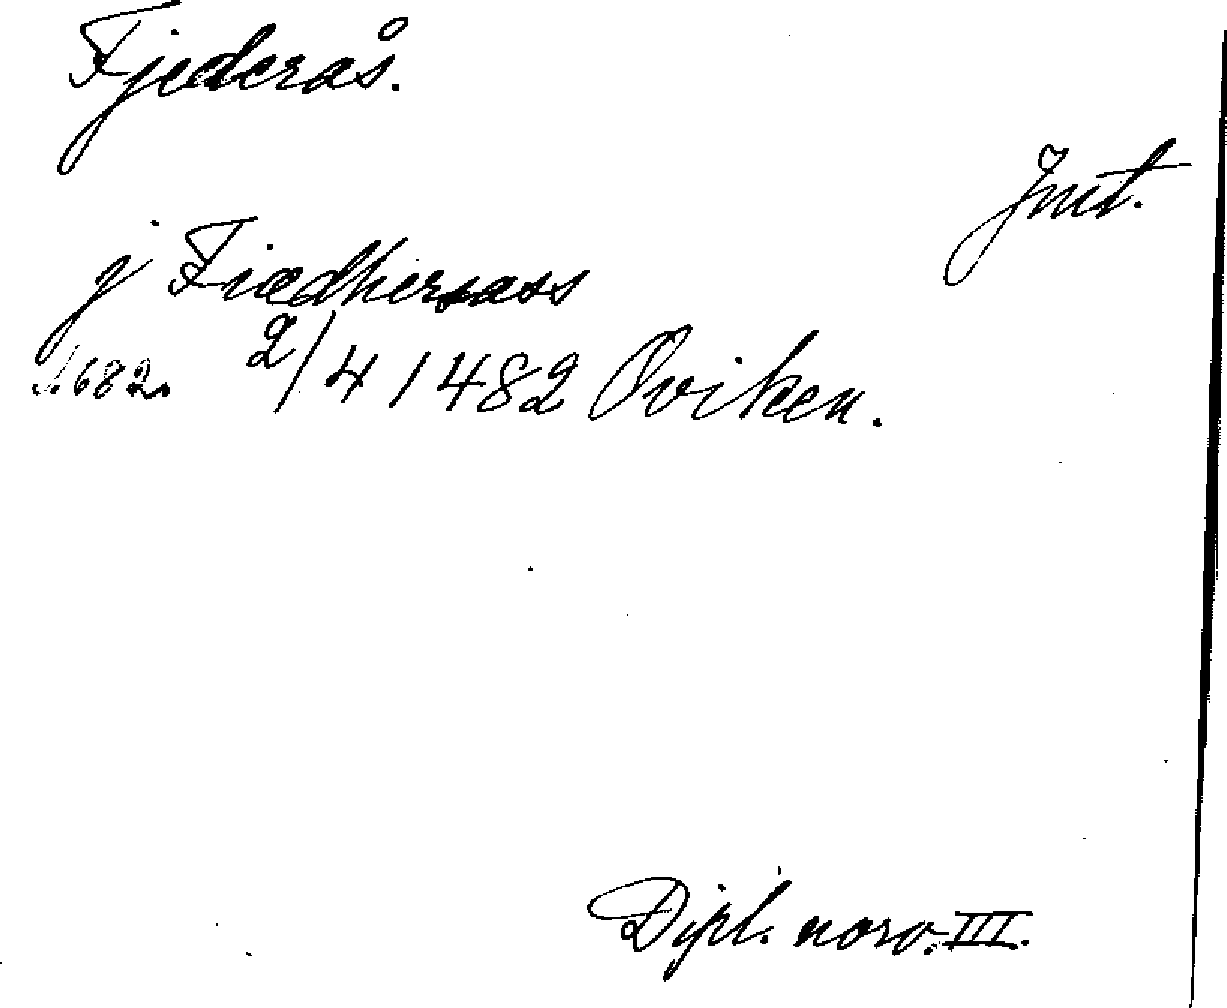 Fjederås.
Jmt.
j Fiædhersaass
s. 682. 2/4 1482 Oviken.
Dipl. norv. III.